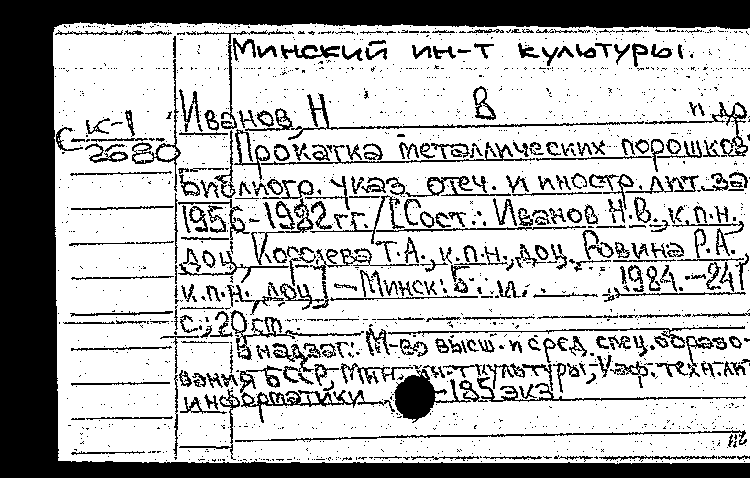 Минский ин-т культуры.
Иванов, Н В и др
К-1
С 2680
Прокатка металлических порошков
Библиогр. указ. отеч. и иностр. лит. за
1956-1982 гг. / [Сост.: Иванов Н.В., к.п.н.,
доц., Косолева Т.А., к.п.н., доц., Ровина Р.А.,
к.п.н., доц] - Минск: Б. и., 1984. - 241
с.; 20 см.
В надзаг.: М-во высш. и сред. спец. образо-
вания БССР, Мин. ин-т культуры, Каф. техн. ли
информатики -185 экз.